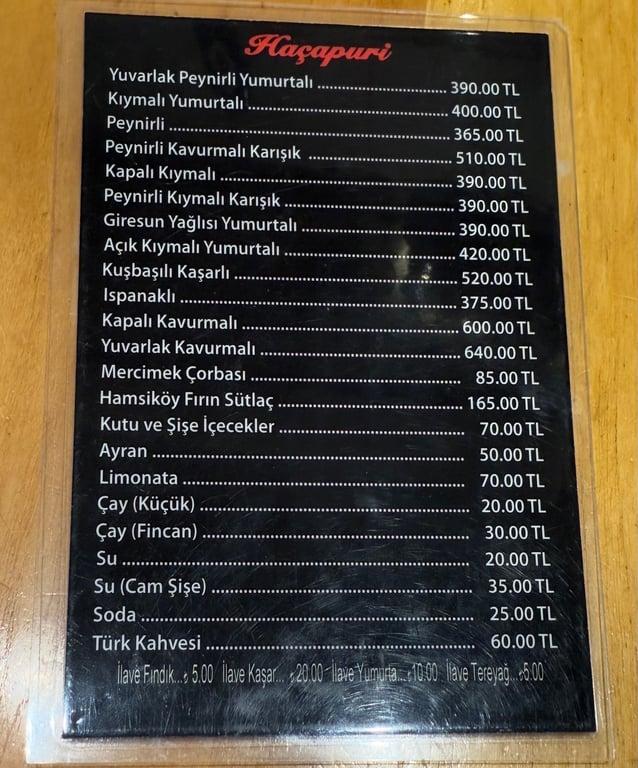 Haçapuri
Yuvarlak Peynirli Yumurtalı ................................ 390.00 TL
Kıymalı Yumurtalı ................................................ 400.00 TL
Peynirli .................................................................... 365.00 TL
Peynirli Kavurmalı Karışık .................................. 510.00 TL
Kapalı Kıymalı ........................................................ 390.00 TL
Peynirli Kıymalı Karışık ........................................ 390.00 TL
Giresun Yağlısı Yumurtalı .................................... 390.00 TL
Açık Kıymalı Yumurtalı ........................................ 420.00 TL
Kuşbaşılı Kaşarlı .................................................... 520.00 TL
Ispanaklı ................................................................ 375.00 TL
Kapalı Kavurmalı .................................................. 600.00 TL
Yuvarlak Kavurmalı .............................................. 640.00 TL
Mercimek Çorbası ................................................ 85.00 TL
Hamsiköy Fırın Sütlaç .......................................... 165.00 TL
Kutu ve Şişe İçecekler .......................................... 70.00 TL
Ayran ...................................................................... 50.00 TL
Limonata ................................................................ 70.00 TL
Çay (Küçük) ............................................................ 20.00 TL
Çay (Fincan) .......................................................... 30.00 TL
Su ............................................................................ 20.00 TL
Su (Cam Şişe) ........................................................ 35.00 TL
Soda ........................................................................ 25.00 TL
Türk Kahvesi .......................................................... 60.00 TL
İlave Fındık...₺ 5.00 İlave Kaşar... ₺20.00 İlave Yumurta...₺10.00 İlave Tereyağ...₺6.00